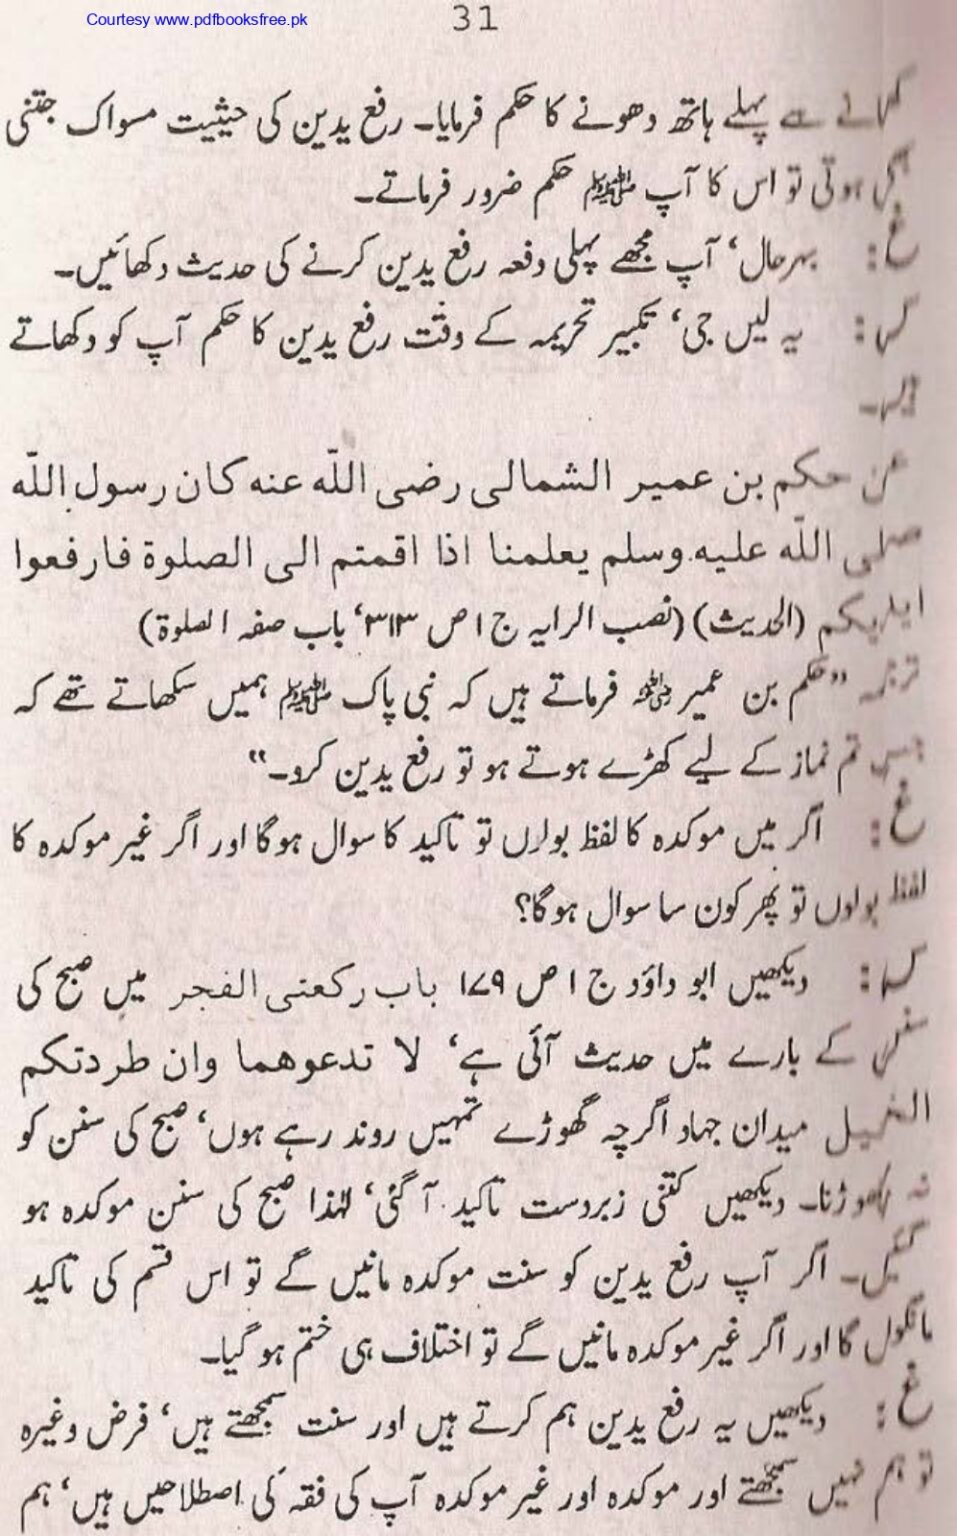 Courtesy www.pdfbooksfree.pk
31
کھانے سے پہلے ہاتھ دھونے کا حکم فرمایا۔ رفع یدین کی حیثیت مسواک جتنی
بھی ہوتی تو اس کا آپ ﷺ حکم ضرور فرماتے۔
غ: بہرحال‘ آپ مجھے پہلی دفعہ رفع یدین کرنے کی حدیث دکھائیں۔
س: یہ لیں جی‘ تکبیر تحریمہ کے وقت رفع یدین کا حکم آپ کو دکھاتے
ہیں۔
عن حکم بن عمیر الشمالی رضی اللّٰہ عنہ کان رسول اللّٰہ
صلی اللّٰہ علیہ وسلم یعلمنا اذا اقمتم الی الصلوۃ فارفعوا
ایدیکم (الحدیث) (نصب الرایہ ج ۱ ص ۳۱۳‘ باب صفہ الصلوۃ)
ترجمہ ”حکم بن عمیر ؓ فرماتے ہیں کہ نبی پاک ﷺ ہمیں سکھاتے تھے کہ
جب تم نماز کے لیے کھڑے ہوتے ہو تو رفع یدین کرو۔“
غ: اگر میں موکدہ کا لفظ بولوں تو تاکید کا سوال ہوگا اور اگر غیر موکدہ کا
لفظ بولوں تو پھر کون سا سوال ہوگا؟
س: دیکھیں ابو داؤد ج ۱ ص ۱۷۹ باب رکعتی الفجر میں صبح کی
سنتوں کے بارے میں حدیث آئی ہے‘ لا تدعوھما وان طردتکم
الخیل میدان جہاد اگرچہ گھوڑے تمہیں روند رہے ہوں‘ صبح کی سنن کو
نہ چھوڑنا۔ دیکھیں کتنی زبردست تاکید آگئی‘ لہٰذا صبح کی سنن موکدہ ہو
گئیں۔ اگر آپ رفع یدین کو سنت موکدہ مانیں گے تو اس قسم کی تاکید
مانگوں گا اور اگر غیر موکدہ مانیں گے تو اختلاف ہی ختم ہوگیا۔
غ: دیکھیں یہ رفع یدین ہم کرتے ہیں اور سنت سمجھتے ہیں‘ فرض وغیرہ
تو ہم نہیں سمجھتے اور موکدہ اور غیر موکدہ آپ کی فقہ کی اصطلاحیں ہیں‘ ہم